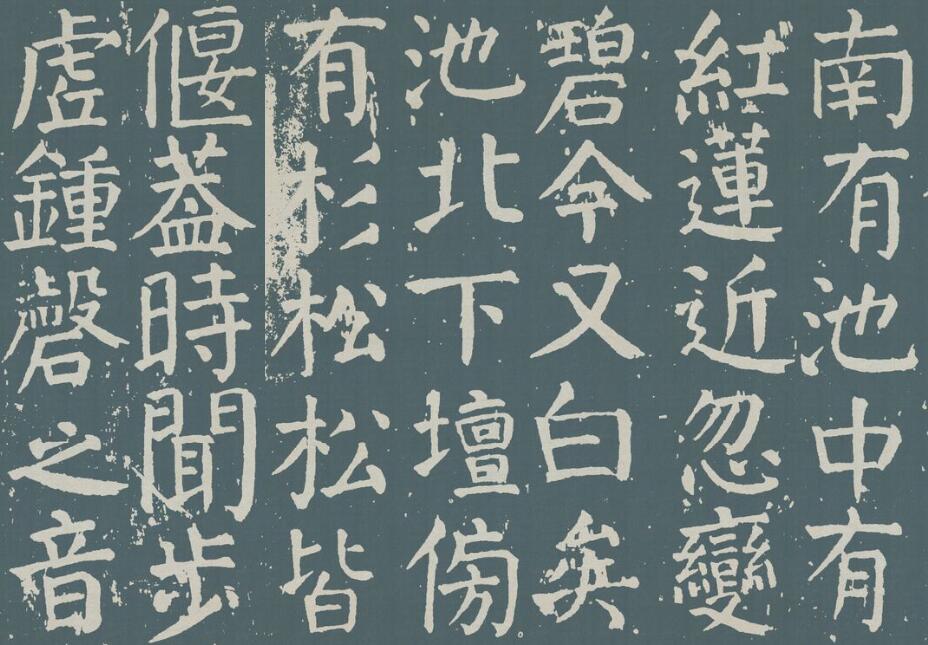 南有池中有
紅蓮近忽變
碧今又白矣
池北下壇傍
有杉松松皆
偃蓋時聞步
虛鍾磬之音